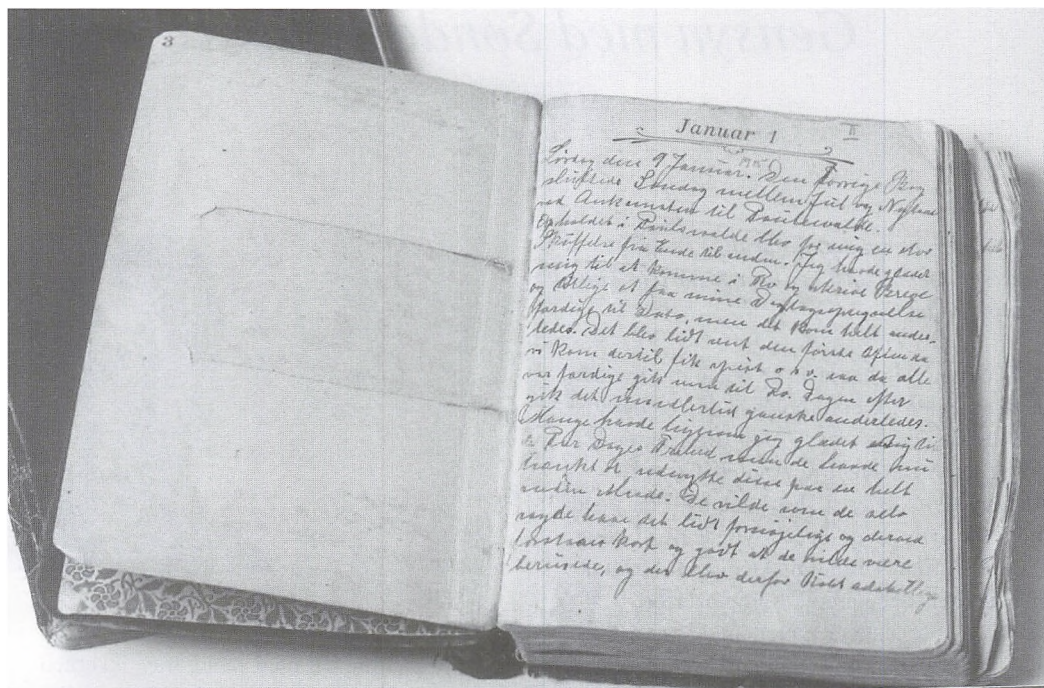 Gensyn med Sønde
3
Januar 1
II
Lørdag den 9 Januar. 1915 Den forrige Bog
sluttede Søndag mellem Jul og Nytaar
ved Ankomsten til Paulswalde.
Opholdet i Paulswalde blev for mig en stor
Skuffelse fra Ende til anden. Jeg havde glædet
mig til at komme i Ro og skrive Breve
og tillige at faa mine Dagbogsoptegnelser
færdige til Dato, men det kom helt ander-
ledes. Det blev lidt sent den første Aften da
vi kom dertil fik spist o.s.v. saa da alle
var færdige gik man til Ro. Dagen efter
gik det imidlertid ganske anderledes.
Mange havde ligesom jeg glædet sig til
de Par Dages Frihed men de havde nu
tænkt at udnytte disse paa en helt
anden Maade. De vilde som de selv
sagde have det lidt fornøjeligt og derved
forstaas kort og godt at de vilde være
berusede, og der blev derfor